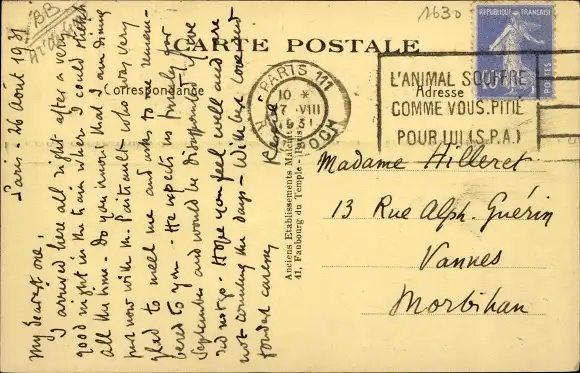 BB
1630
CARTE POSTALE
Correspondance
Adresse
RÉPUBLIQUE FRANÇAISE
POSTES
PARIS 111
10 *
7 VIII
1931
L'ANIMAL SOUFFRE
COMME VOUS. PITIÉ
POUR LUI (S.P.A.)
Paris - 26 Août 1931
My dearest one,
I arrived here all right after a very
good night in the train where I could stretch
all the time. Do you know that I am dining
just now with M. who was very
glad to meet me and asks to be remem-
bered to you. He expects us firmly for
September and would be disappointed if we
did not go. Hope you feel well and are
not counting the days - With best love and
tender caress
Anciens Etablissements Malcuit
41, Faubourg du Temple - Paris
Madame Hilleret
13 Rue Alph. Guérin
Vannes
Morbihan